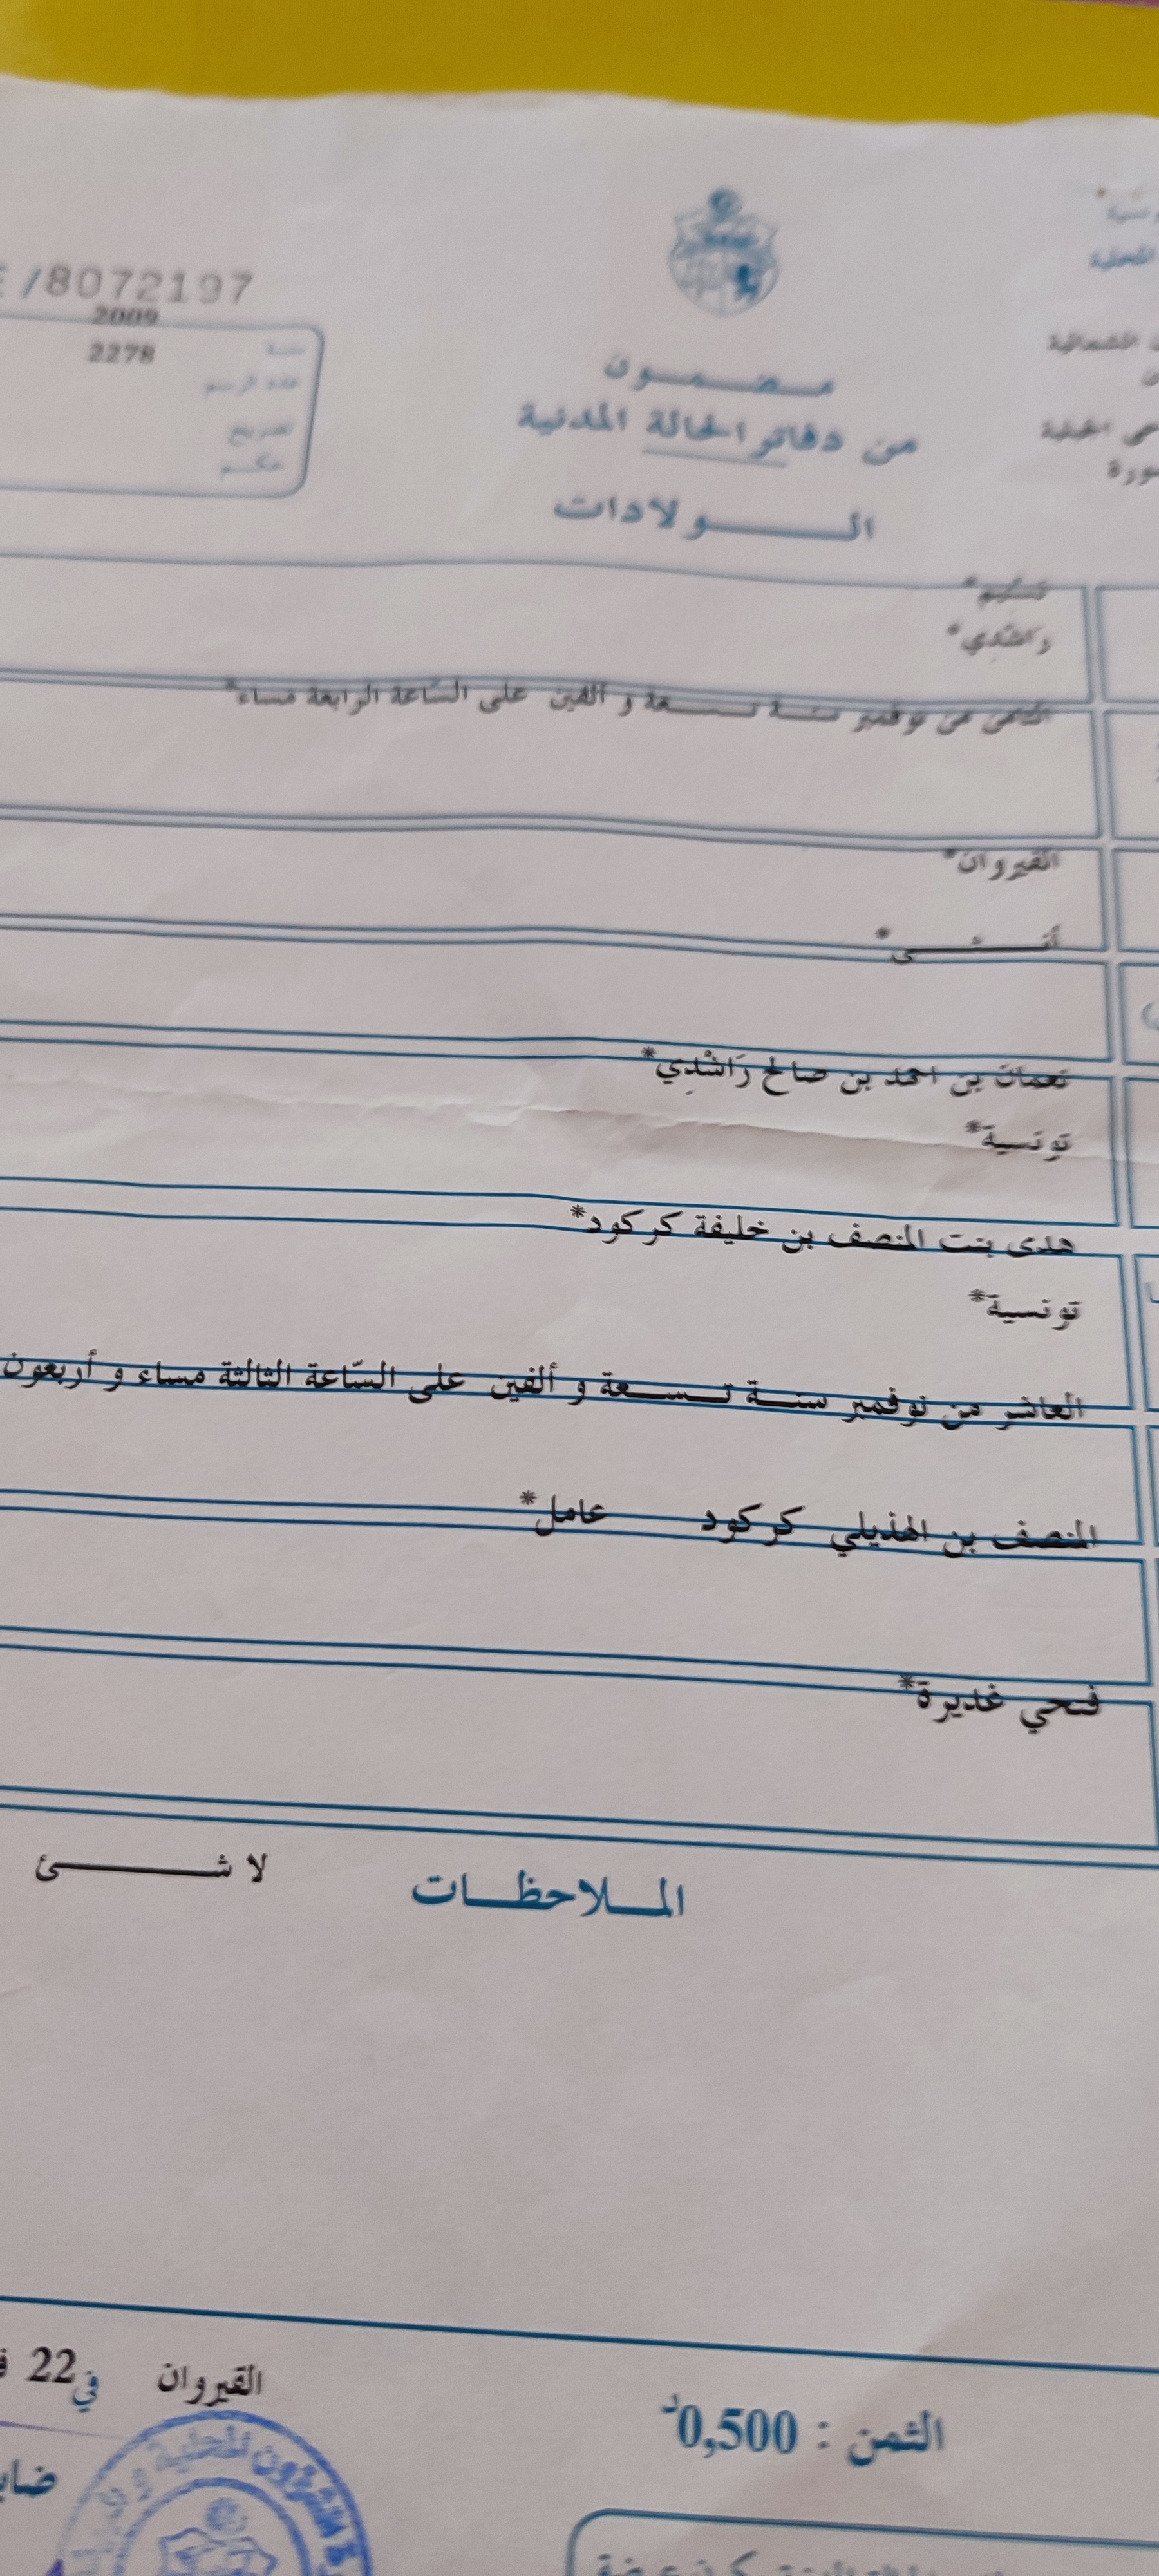 ونسية
المحلية
الشمالية
/8072197
2009
سنة 2278
عدد الرسم
تصريح
حكم
مضمون
من دفاتر الحالة المدنية
الولادات
راشدي*
من نوفمبر سنة تسعة و ألفين على الساعة الرابعة مساء*
القيروان*
أنثى*
نعمان بن احمد بن صالح رَاشْدِي*
تونسية*
هدى بنت المنصف بن خليفة كركود*
تونسية*
العاشر من نوفمبر سنة تسعة و ألفين على السّاعة الثالثة مساء و أربعون
المنصف بن الهذيلي كركود عامل*
فتحي غديرة*
الملاحظات لا شئ
القيروان في 22
الثمن : 0,500د
الشؤون المحلية و